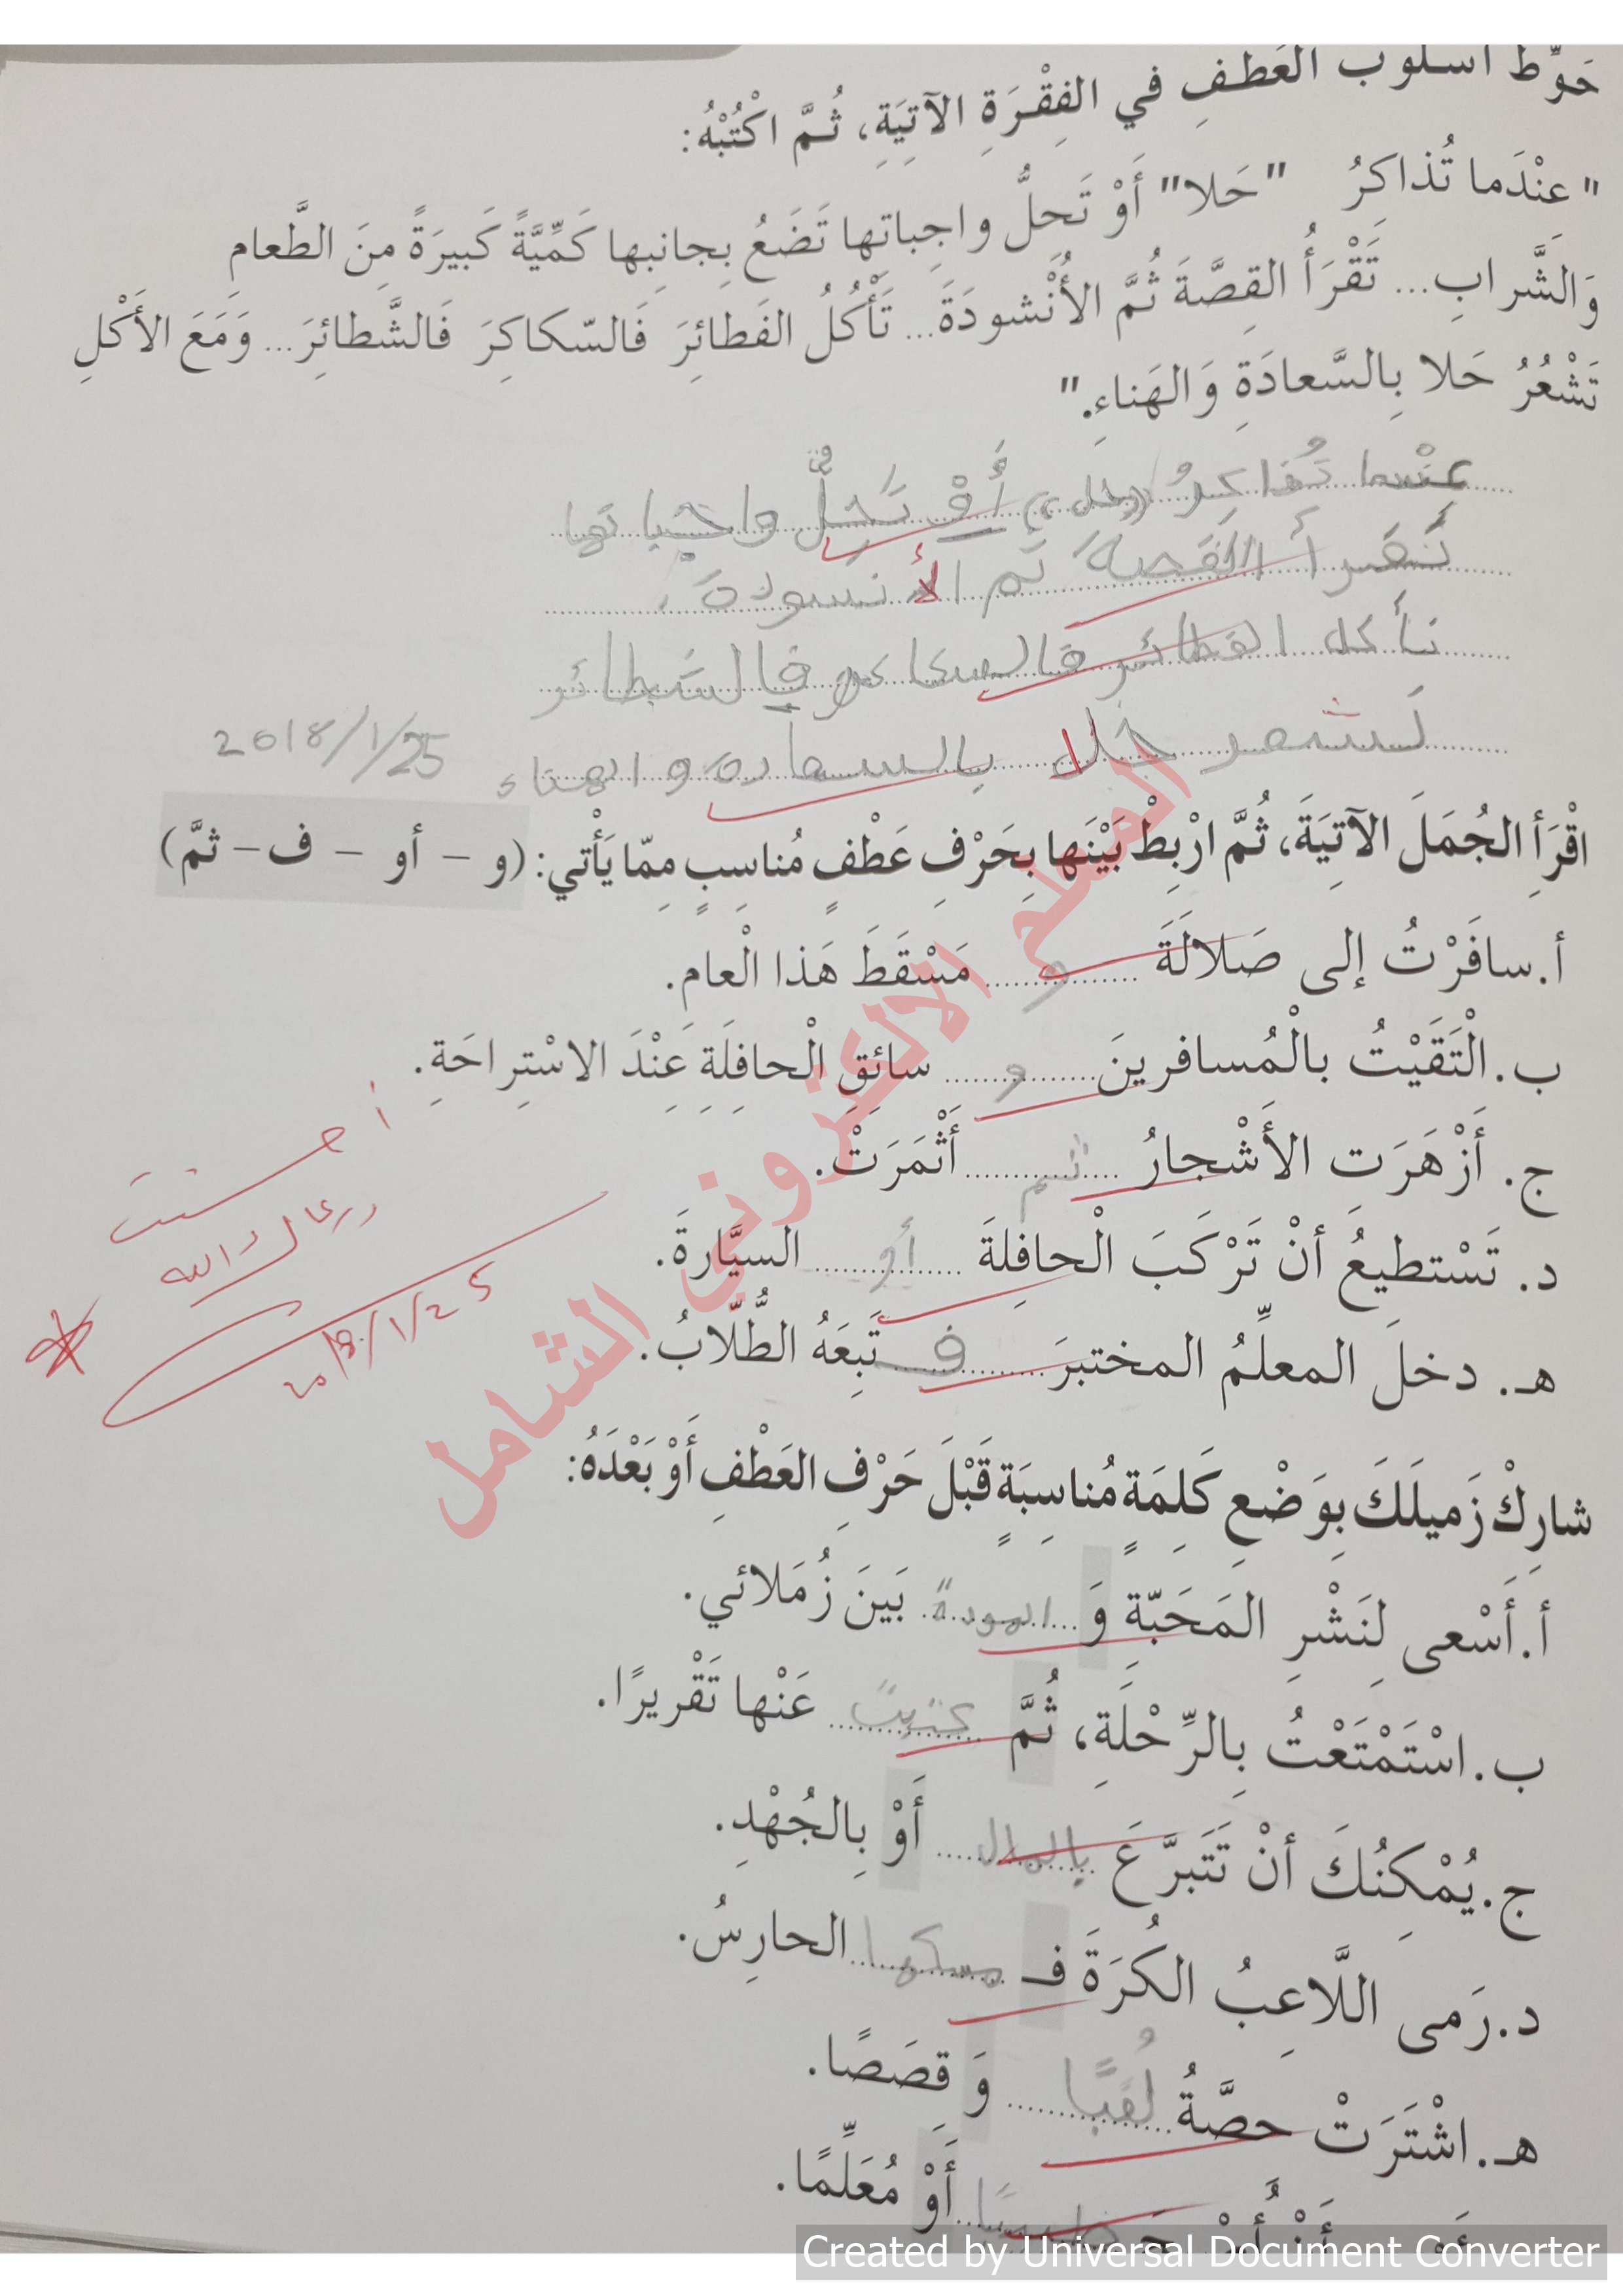 حَوِّط أسلوب العَطفِ في الفِقْرَةِ الآتِيَةِ، ثُمَّ اكْتُبْهُ:
" عِنْدَما تُذاكِرُ "حَلا" أَوْ تَحلُّ واجِباتها تَضَعُ بِجانِبها كَمِّيَّةً كَبيرَةً مِنَ الطَّعامِ
وَالشَّرابِ... تَقْرَأُ القِصَّةَ ثُمَّ الأُنْشودَةَ... تَأْكُلُ الفَطائِرَ فَالسّكاكِرَ فَالشَّطائِرَ... وَمَعَ الأَكْلِ
تَشْعُرُ حَلا بِالسَّعادَةِ وَالهَناءِ."
عِنْدما تُذاكِرُ (حلى) أَوْ تَحِلُّ واجباتها
تَقرأ القصةَ ثم الأنشودةَ
تأكل الفطائر فالسكاكر فالشطائر
تشعر حلا بالسعادة والهناء
2018/1/25
اقْرَأ الجُمَلَ الآتِيَةَ، ثُمَّ ارْبِطْ بَيْنَها بِحَرْفِ عَطْفٍ مُناسِبٍ مِمّا يَأْتي: (و – أو – ف – ثمَّ)
أ. سافَرْتُ إلى صَلالَةَ و مَسْقَطَ هَذا الْعام.
ب. الْتَقَيْتُ بالْمُسافرينَ و سائِقِ الْحافِلَةِ عَنْدَ الاسْتِراحَةِ.
ج. أَزْهَرَتِ الأَشْجارُ ثم أَثْمَرَتْ.
د. تَسْتطيعُ أنْ تَرْكَبَ الْحافِلةَ أو السيَّارةَ.
هـ. دخلَ المعلِّمُ المختبرَ فـ تَبِعَهُ الطُّلّابُ.
أحسنت
رعاك الله
2018/1/25
المعلم الالكتروني الشامل
شارِكْ زَميلَكَ بِوَضْعِ كَلِمَةٍ مُناسِبَةٍ قَبْلَ حَرْفِ العَطْفِ أَوْ بَعْدَهُ:
أ. أَسْعى لِنَشْرِ المَحَبّةِ وَ المودة بَينَ زُمَلائي.
ب. اسْتَمْتَعْتُ بِالرِّحْلَةِ، ثُمَّ كتبت عَنْها تَقْريرًا.
ج. يُمْكِنُكَ أنْ تَتَبرَّعَ بالمال أَوْ بِالجُهْدِ.
د. رَمى اللَّاعِبُ الكُرَةَ فـ مسكها الحارِسُ.
هـ. اشْتَرَتْ حصَّةُ لُعَبًا وَ قِصَصًا.
أَوْ مُعَلِّمًا.
Created by Universal Document Converter